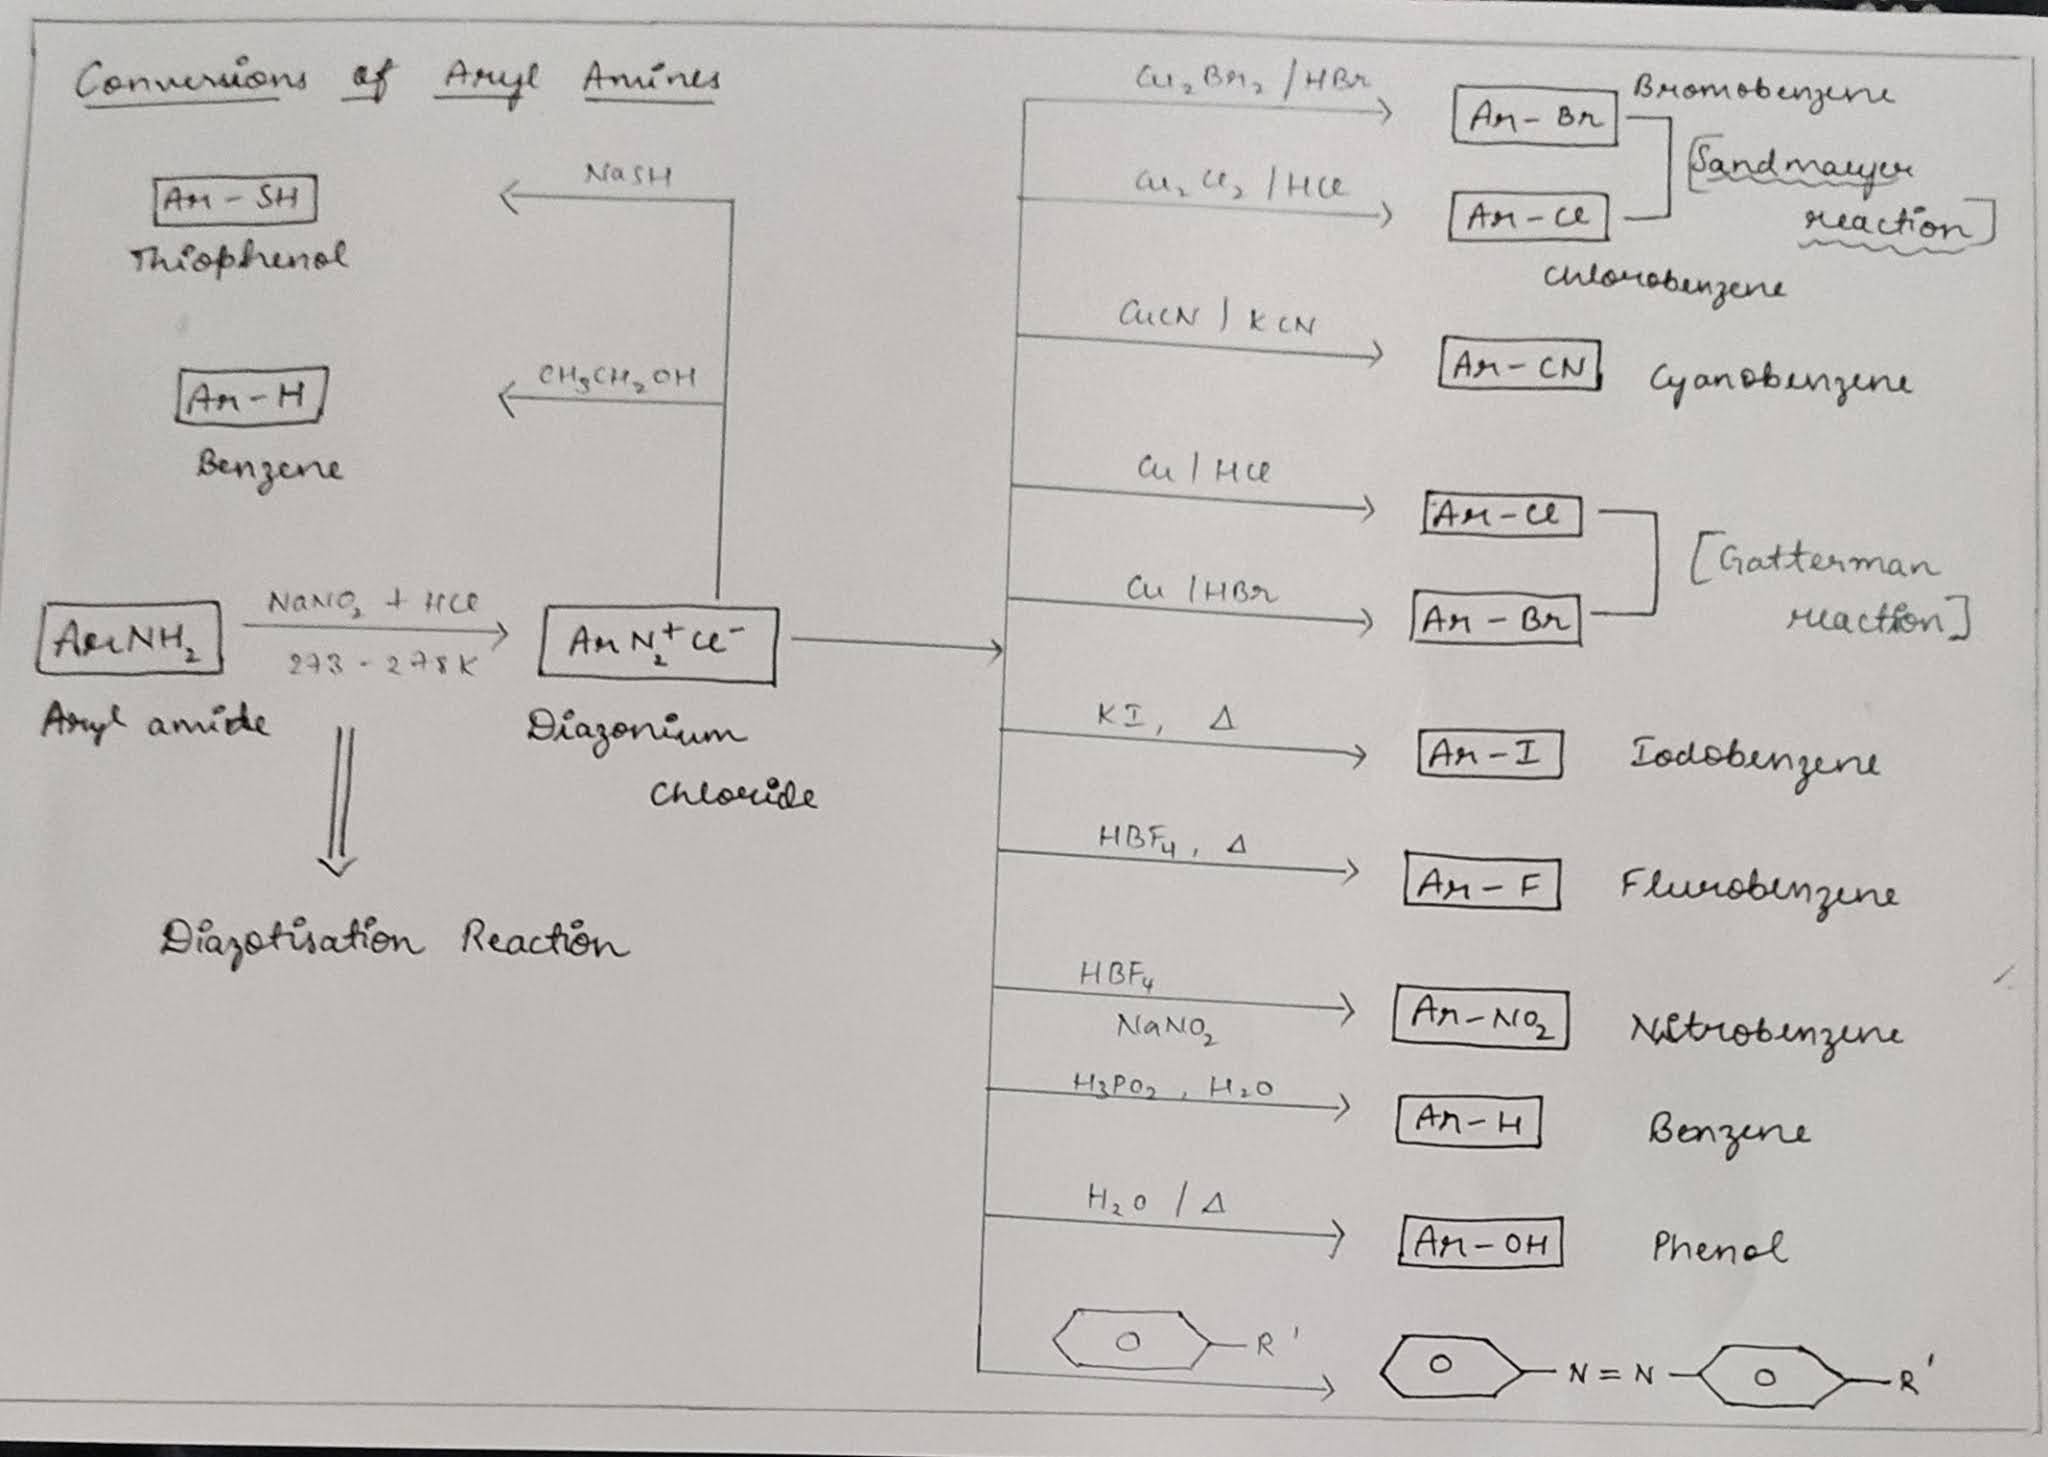 Conversions of Aryl Amines
NaSH
Ar - SH
Thiophenol
CH3CH2OH
Ar - H
Benzene
ArNH2
NaNO2 + HCl
273 - 278K
ArN2+Cl-
Aryl amide
Diazonium
Chloride
Diazotisation Reaction
Cu2Br2 / HBr
Ar - Br
Bromobenzene
Cu2Cl2 / HCl
Ar - Cl
Chlorobenzene
[Sandmaeyer
reaction]
CuCN / KCN
Ar - CN
Cyanobenzene
Cu / HCl
Ar - Cl
Cu / HBr
Ar - Br
[Gatterman
reaction]
KI, Δ
Ar - I
Iodobenzene
HBF4, Δ
Ar - F
Flurobenzene
HBF4
NaNO2
Ar - NO2
Nitrobenzene
H3PO2, H2O
Ar - H
Benzene
H2O / Δ
Ar - OH
Phenol
R'
N = N
R'